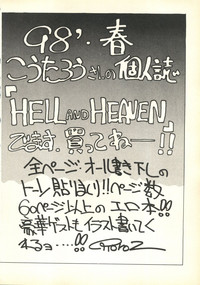 98'・春
こうたろうさんの個人誌
「HELL AND HEAVEN」
でます。買ってねー!!
全ページ・オール書き下しの
トーン貼りまくり!!ページ数
60ページ以上のエロ本!!
豪華ゲストもイラスト書いてく
れるョ····!!